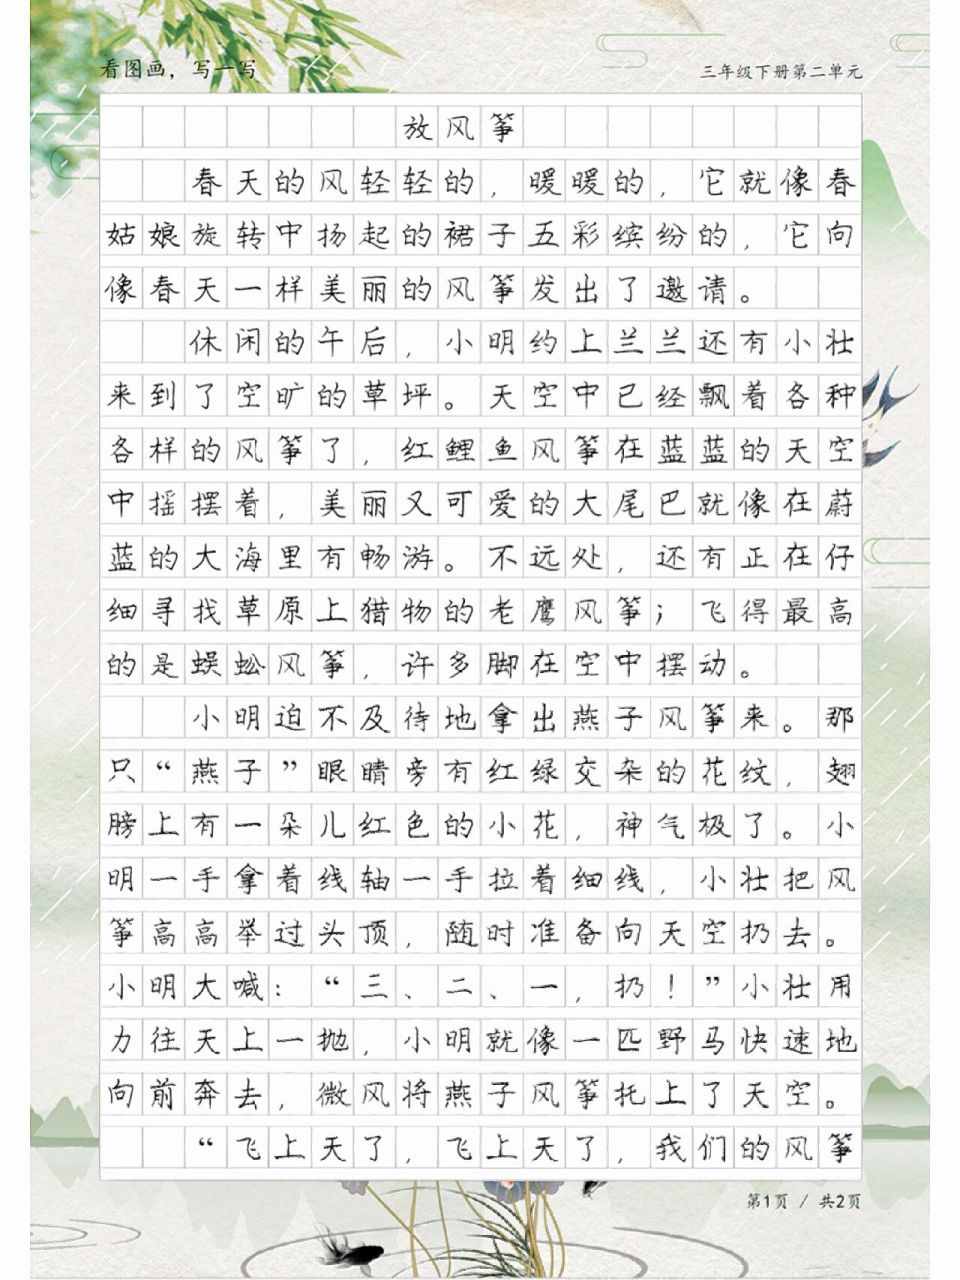 看图画，写一写
三年级下册第二单元
放风筝
春天的风轻轻的，暖暖的，它就像春
姑娘旋转中扬起的裙子五彩缤纷的，它向
像春天一样美丽的风筝发出了邀请。
休闲的午后，小明约上兰兰还有小壮
来到了空旷的草坪。天空中已经飘着各种
各样的风筝了，红鲤鱼风筝在蓝蓝的天空
中摇摆着，美丽又可爱的大尾巴就像在蔚
蓝的大海里有畅游。不远处，还有正在仔
细寻找草原上猎物的老鹰风筝；飞得最高
的是蜈蚣风筝，许多脚在空中摆动。
小明迫不及待地拿出燕子风筝来。那
只“燕子”眼睛旁有红绿交杂的花纹，翅
膀上有一朵儿红色的小花，神气极了。小
明一手拿着线轴一手拉着细线，小壮把风
筝高高举过头顶，随时准备向天空扔去。
小明大喊：“三、二、一，扔！”小壮用
力往天上一抛，小明就像一匹野马快速地
向前奔去，微风将燕子风筝托上了天空。
“飞上天了，飞上天了，我们的风筝
第1页 / 共2页